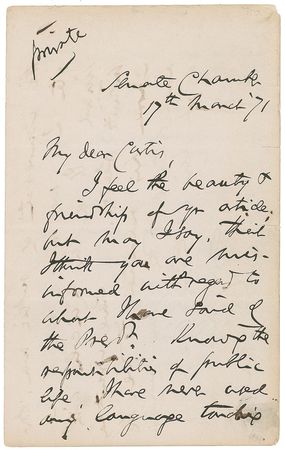 private
Senate Chamber
17th March '71
My dear Curtis,
I feel the beauty &
friendship of yr article,
but may I say, that
I think you are mis-
informed with regard to
what I have said of
the Presdt. Knowing the
responsibilities of public
life, I have never used
any language touching